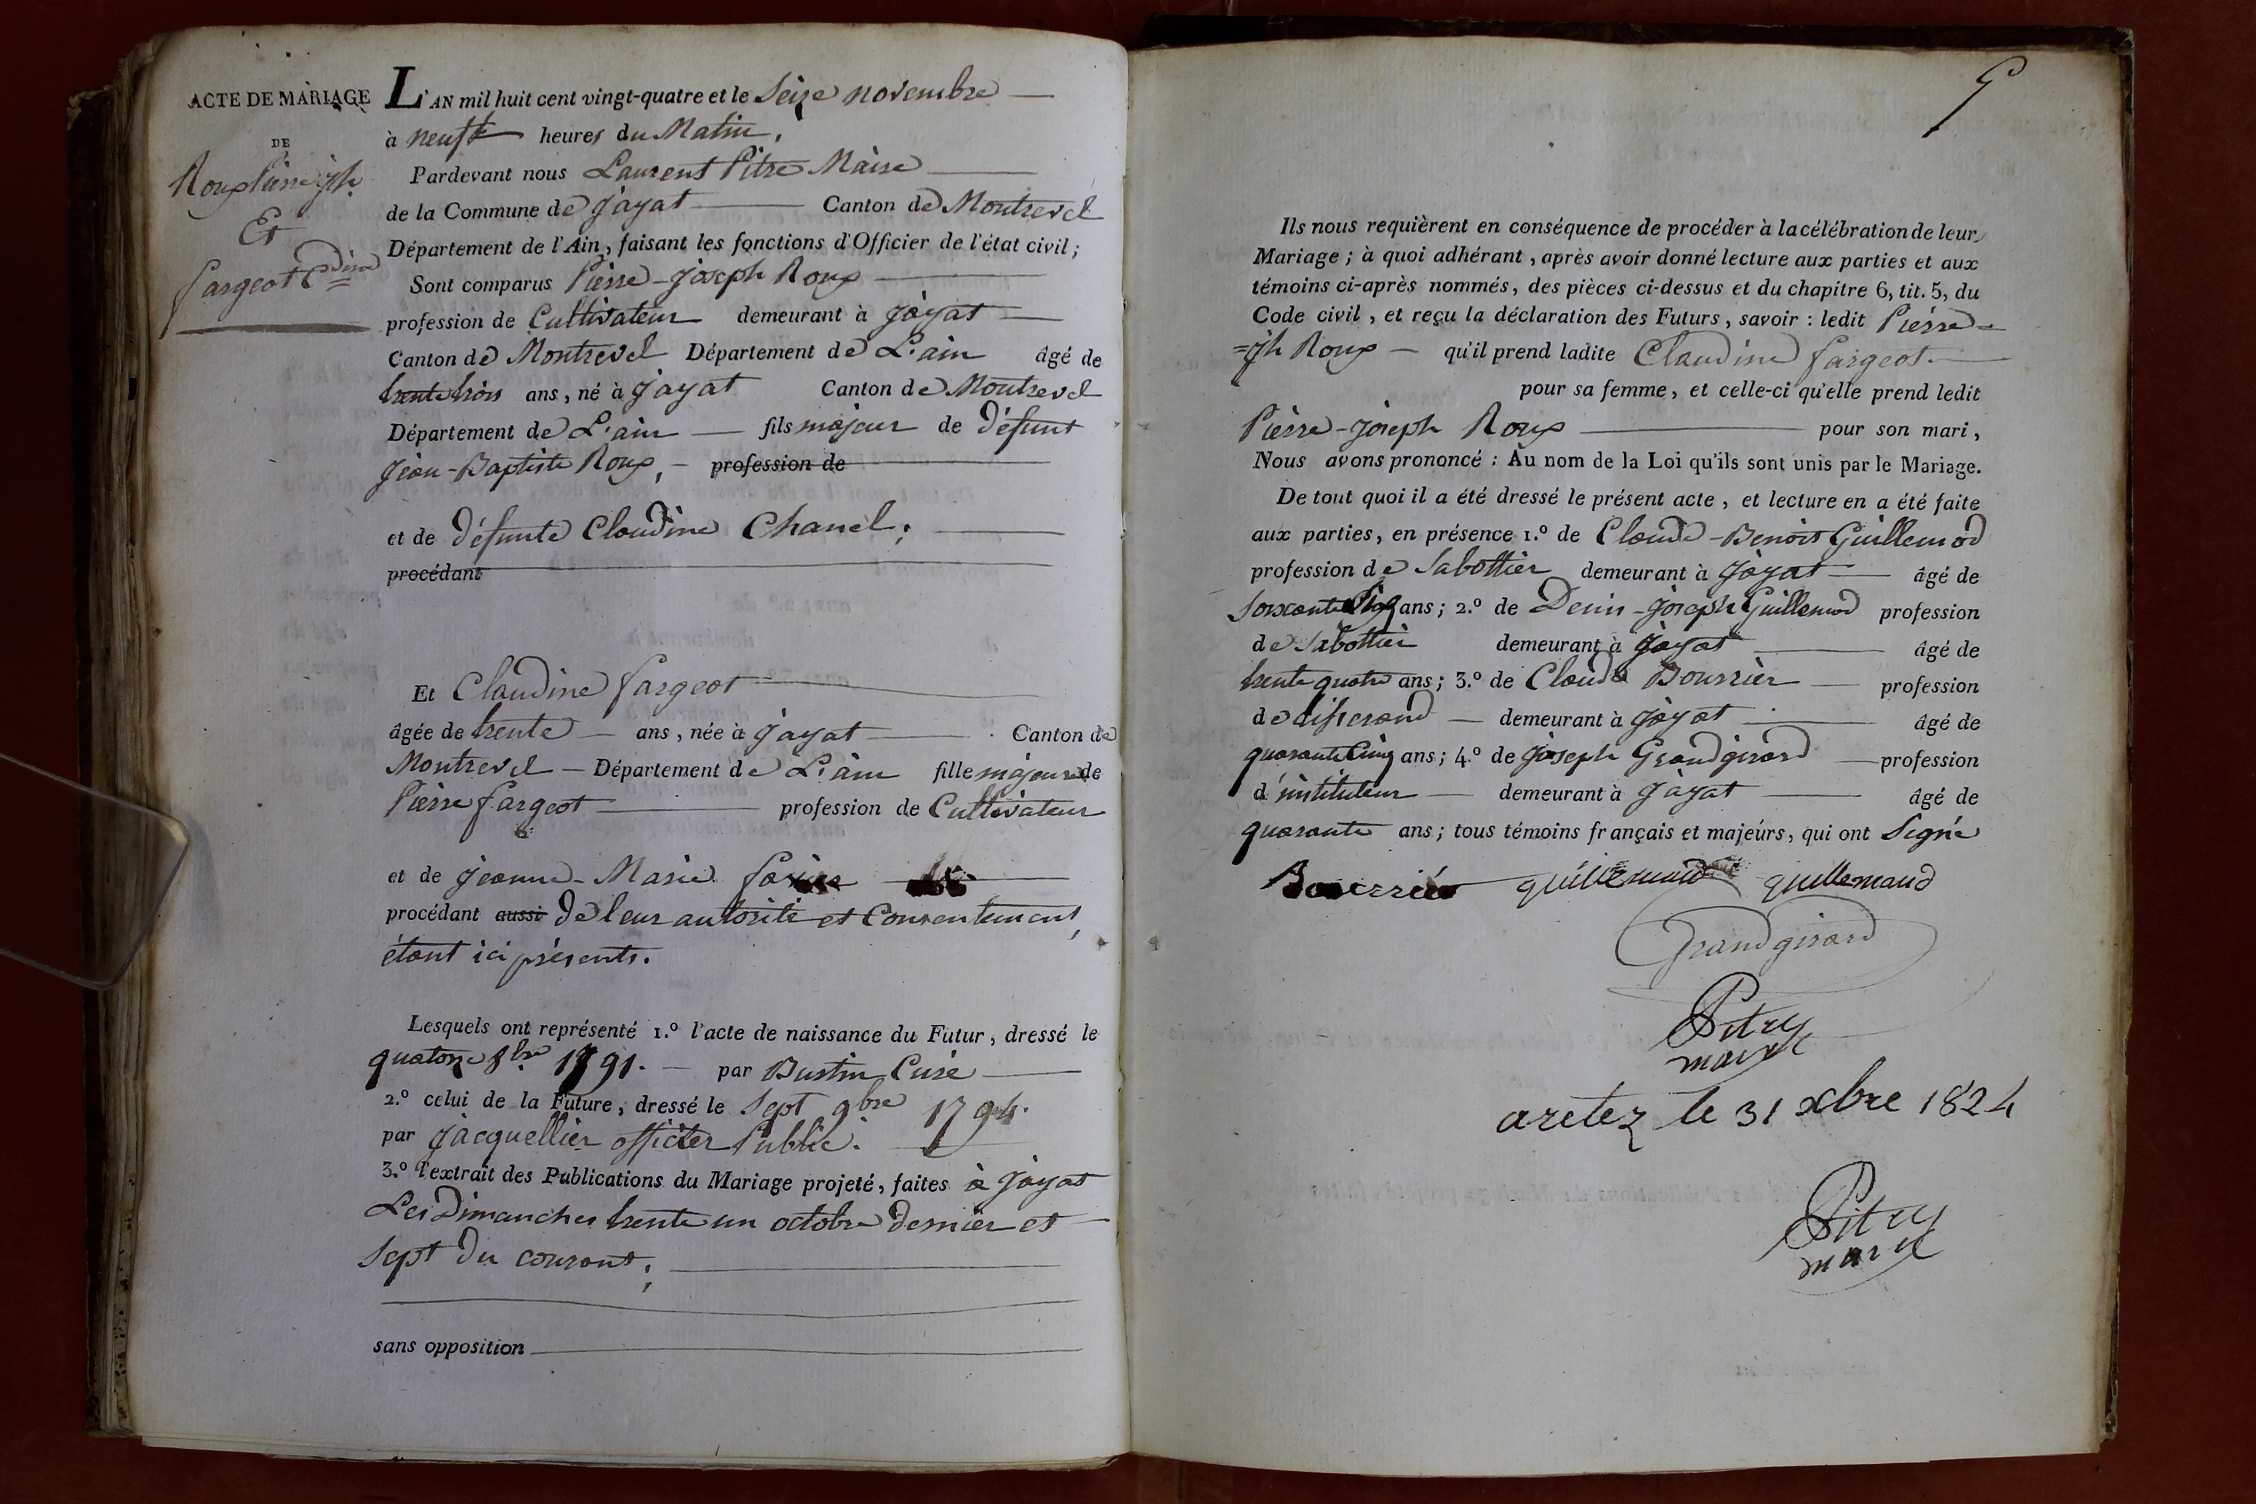 ACTE DE MARIAGE
DE
Roux Pierre jph.
Et
fargeot Cdine
L'AN mil huit cent vingt-quatre et le Seize novembre
à neuf heures du Matin,
Pardevant nous Laurent Pitre Maire
de la Commune de jayat Canton de Montrevel
Département de l'Ain, faisant les fonctions d'Officier de l'état civil;
Sont comparus Pierre-joseph Roux
profession de Cultivateur demeurant à jayat
Canton de Montrevel Département de L'ain âgé de
trente trois ans, né à jayat Canton de Montrevel
Département de L'ain fils majeur de défunt
jean-Baptiste Roux, profession de
et de défunte Claudine Chanel;
procédant
Et Claudine fargeot
âgée de trente ans, née à jayat Canton de
Montrevel Département de L'ain fille majeure de
Pierre fargeot profession de Cultivateur
et de jeanne-Marie
procédant aussi de leur autorité et Consentement,
étant ici présents.
Lesquels ont représenté 1.º l'acte de naissance du Futur, dressé le
quatorze 8bre 1791. par Bustin Curé
2.º celui de la Future, dressé le Sept 9bre 1794.
par jacquellier officier Public.
3.º l'extrait des Publications du Mariage projeté, faites à jayat
Les Dimanches trente un octobre dernier et
Sept du courant;
sans opposition
Ils nous requièrent en conséquence de procéder à la célébration de leur
Mariage; à quoi adhérant, après avoir donné lecture aux parties et aux
témoins ci-après nommés, des pièces ci-dessus et du chapitre 6, tit. 5, du
Code civil, et reçu la déclaration des Futurs, savoir: ledit Pierre-
=jh Roux qu'il prend ladite Claudine fargeot.
pour sa femme, et celle-ci qu'elle prend ledit
Pierre-joseph Roux pour son mari,
Nous avons prononcé: Au nom de la Loi qu'ils sont unis par le Mariage.
De tout quoi il a été dressé le présent acte, et lecture en a été faite
aux parties, en présence 1.º de Claude-Benoit Guillemod
profession de Sabottier demeurant à jayat âgé de
Soixante ans; 2.º de Denis-joseph Guillemod profession
de Sabottier demeurant à jayat âgé de
trente quatre ans; 3.º de Claude Bourrier profession
de tisserand demeurant à jayat âgé de
quarante Cinq ans; 4.º de joseph Grandgirard profession
d'instituteur demeurant à jayat âgé de
quarante ans; tous témoins français et majeurs, qui ont Signé
Bourrier guillemaud guillemaud
Grandgirard
Pitre
maire
aretez le 31 xbre 1824
Pitre
maire